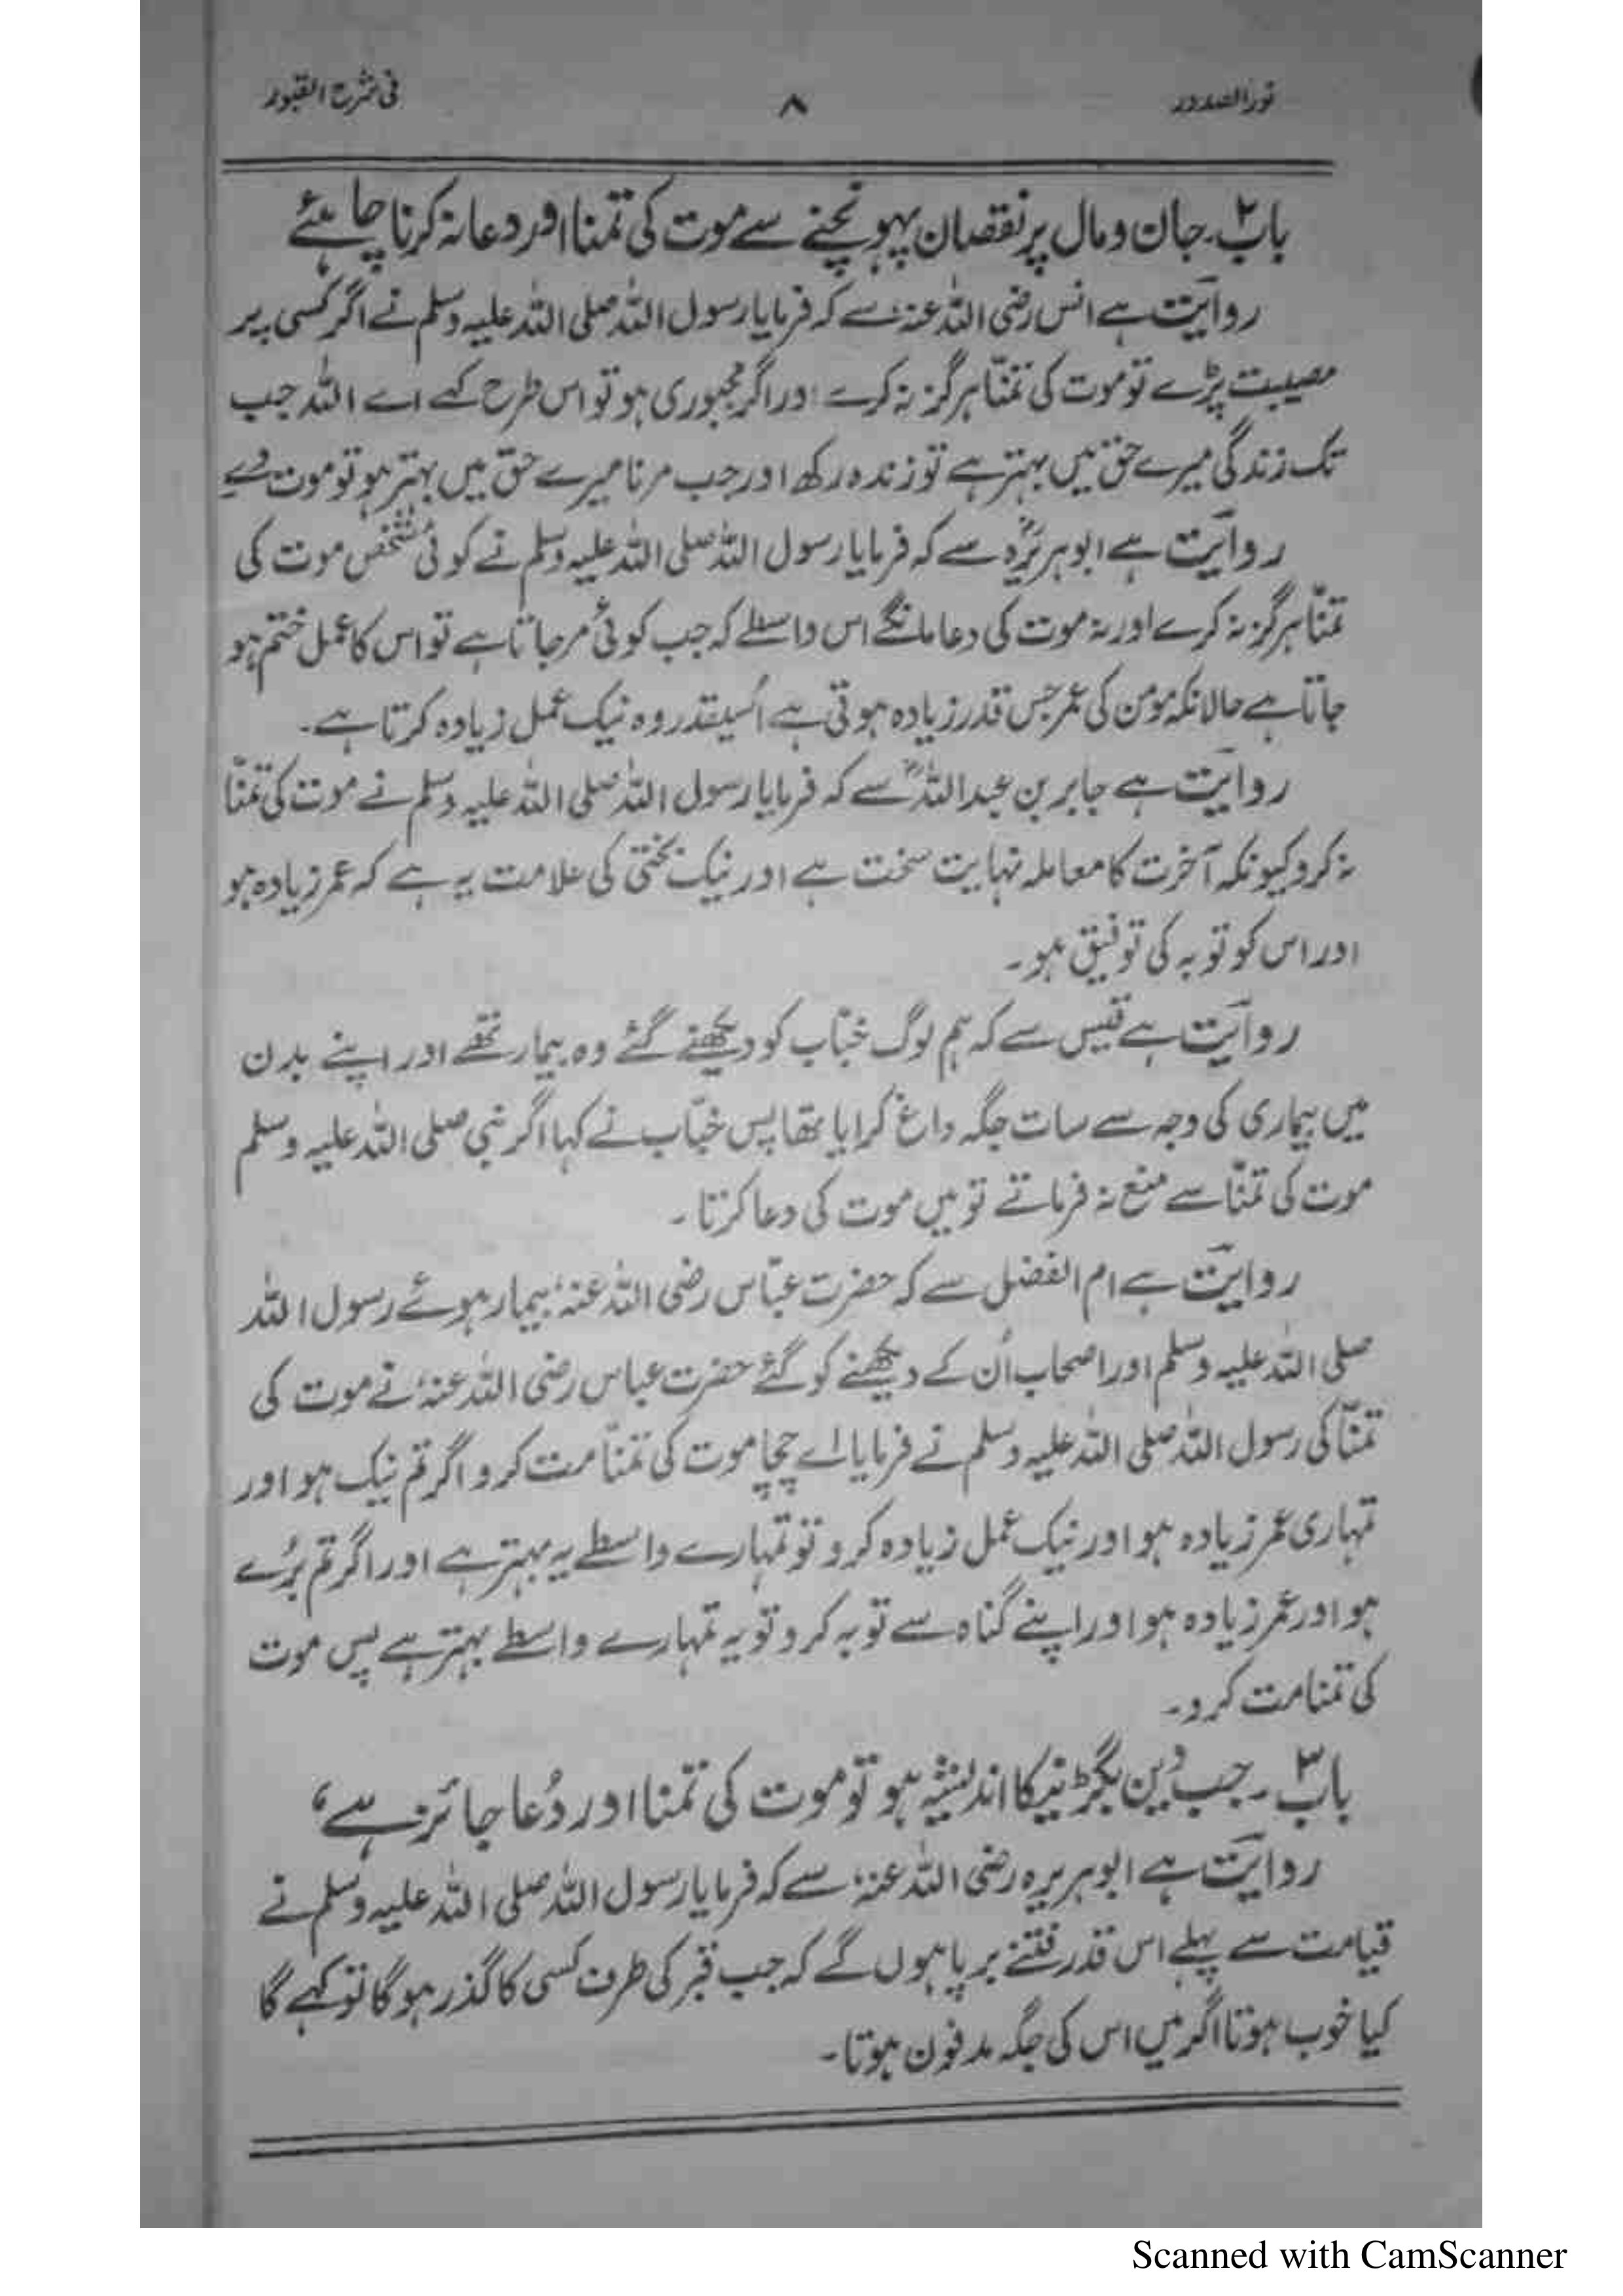 نورالصدور ۸ فی شرح القبور
باب۲۔ جان و مال پر نقصان پہونچنے سے موت کی تمنا اور دعا نہ کرنا چاہئے
روایت ہے انس رضی اللہ عنہ سے کہ فرمایا رسول اللہ صلی اللہ علیہ وسلم نے اگر کسی پر
مصیبت پڑے تو موت کی تمنّا ہرگز نہ کرے اور اگر مجبوری ہو تو اس طرح کہے اے اللہ جب
تک زندگی میرے حق میں بہتر ہے تو زندہ رکھ اور جب مرنا میرے حق میں بہتر ہو تو موت دے
روایت ہے ابوہریرہؓ سے کہ فرمایا رسول اللہ صلی اللہ علیہ وسلم نے کوئی شخص موت کی
تمنّا ہرگز نہ کرے اور نہ موت کی دعا مانگے اس واسطے کہ جب کوئی مرجاتا ہے تو اس کا عمل ختم ہو
جاتا ہے حالانکہ مومن کی عمر جس قدر زیادہ ہوتی ہے اُسیقدر وہ نیک عمل زیادہ کرتا ہے۔
روایت ہے جابر بن عبداللہؓ سے کہ فرمایا رسول اللہ صلی اللہ علیہ وسلم نے موت کی تمنّا
نہ کرو کیونکہ آخرت کا معاملہ نہایت سخت ہے اور نیک بختی کی علامت یہ ہے کہ عمر زیادہ ہو
اور اس کو توبہ کی توفیق ہو۔
روایت ہے قیس سے کہ ہم لوگ خبّاب کو دیکھنے گئے وہ بیمار تھے اور اپنے بدن
میں بیماری کی وجہ سے سات جگہ داغ کرایا تھا پس خبّاب نے کہا اگر نبی صلی اللہ علیہ وسلم
موت کی تمنّا سے منع نہ فرماتے تو میں موت کی دعا کرتا۔
روایت ہے ام الفضل سے کہ حضرت عبّاس رضی اللہ عنہ بیمار ہوئے رسول اللہ
صلی اللہ علیہ وسلم اور اصحاب اُن کے دیکھنے کو گئے حضرت عباس رضی اللہ عنہ نے موت کی
تمنّا کی رسول اللہ صلی اللہ علیہ وسلم نے فرمایا اے چچا موت کی تمنّا مت کرو اگر تم نیک ہو اور
تمہاری عمر زیادہ ہو اور نیک عمل زیادہ کرو تو تمہارے واسطے یہ بہتر ہے اور اگر تم بُرے
ہو اور عمر زیادہ ہو اور اپنے گناہ سے توبہ کرو تو یہ تمہارے واسطے بہتر ہے پس موت
کی تمنا مت کرو۔
باب۳۔ جب دین بگڑنیکا اندیشہ ہو تو موت کی تمنا اور دُعا جائز ہے،
روایت ہے ابوہریرہ رضی اللہ عنہ سے کہ فرمایا رسول اللہ صلی اللہ علیہ وسلم نے
قیامت سے پہلے اس قدر فتنے برپا ہوں گے کہ جب قبر کی طرف کسی کا گذر ہوگا تو کہے گا
کیا خوب ہوتا اگر میں اس کی جگہ مدفون ہوتا۔
Scanned with CamScanner